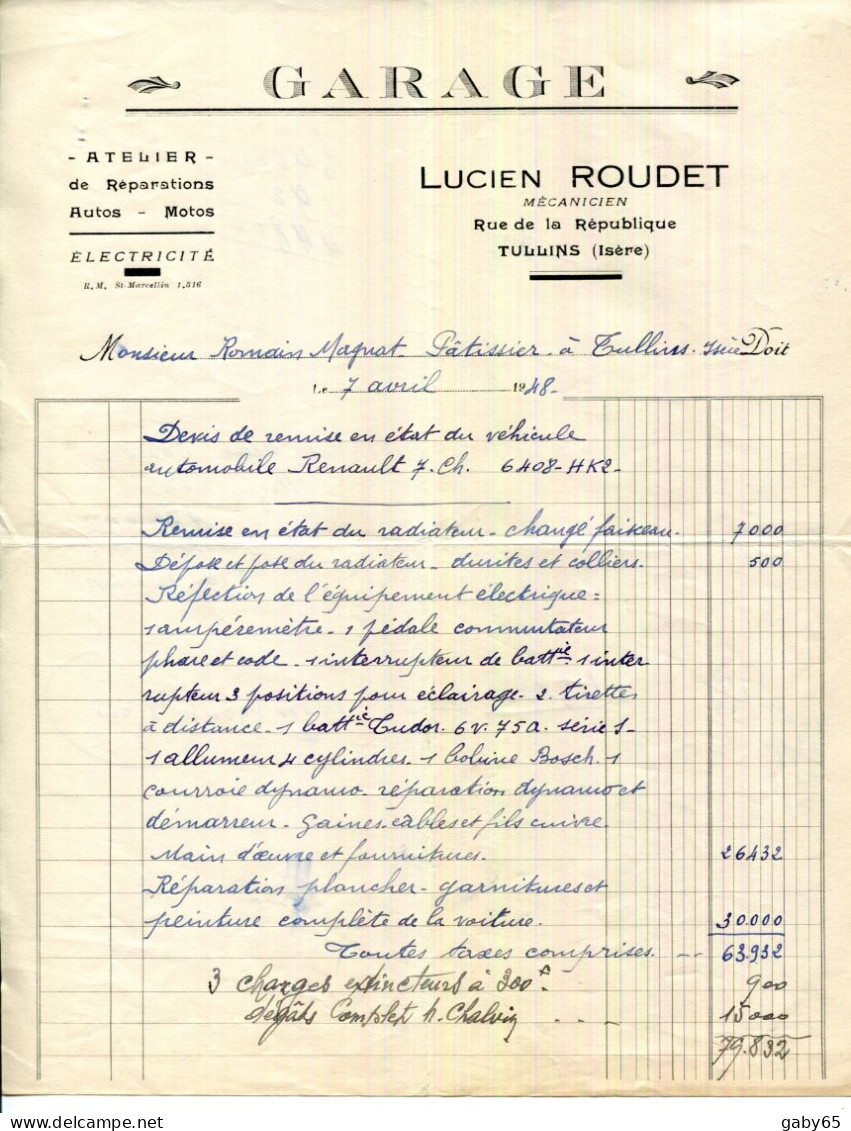 GARAGE
- ATELIER -
de Réparations
Autos - Motos
ÉLECTRICITÉ
R.M. St-Marcellin 1.816
LUCIEN ROUDET
MÉCANICIEN
Rue de la République
TULLINS (Isère)
Monsieur Romain Magnat Pâtissier à Tullins Isère Doit
Le 7 avril 1948
Devis de remise en état du véhicule
automobile Renault 7. Ch. 6408-HK2-
Remise en état du radiateur - changé faisceau. 7000
Dépose et pose du radiateur - durites et colliers. 500
Réfection de l'équipement électrique =
1 ampéremètre - 1 pédale commutateur
phare et code - 1 interrupteur de battie - 1 inter
rupteur 3 positions pour éclairage - 2 tirettes
à distance - 1 battie Tudor. 6v. 75a. série S-
1 allumeur 4 cylindres - 1 bobine Bosch. 1
courroie dynamo - réparation dynamo et
démarreur - Gaines cables et fils cuivre.
Main d'œuvre et fournitures. 26432
Réparation plancher - garnitures et
peinture complète de la voiture. 30.000
Toutes taxes comprises. -- 63.932
3 charges extincteurs à 300 F. 900
dégâts Complet 15000
79.832
gaby65